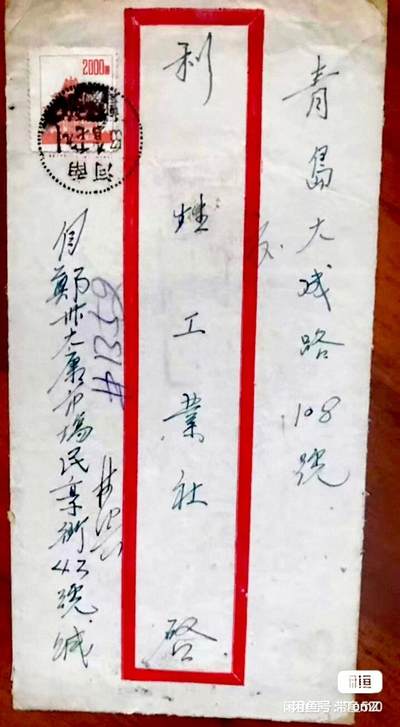 青島大成路108號
利娃工業社 啓
自鄭州大康市場民享街43號 缄
#13359
2000
河南
闲鱼号: